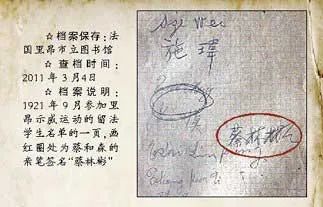 ☆ 档案保存：法
国里昂市立图书馆
☆ 查档时间：
2011 年 3月4日
☆ 档案说明：
1921 年 9 月参加里
昂示威运动的留法
学生名单的一页，画
红圈处为蔡和森的
亲笔签名“蔡林彬”
施瑋
蔡林彬